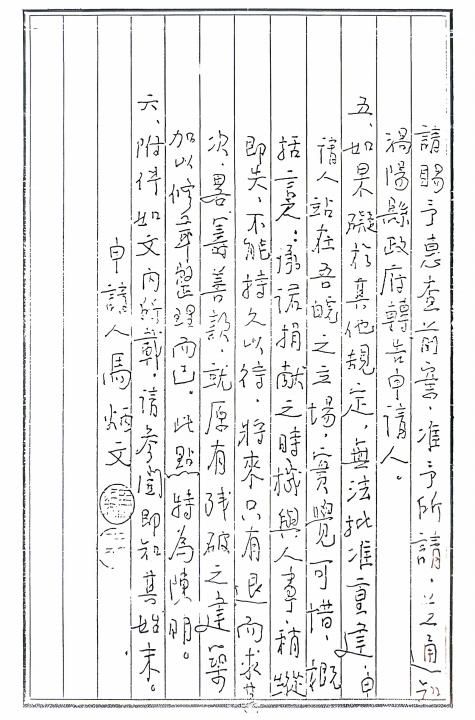 請賜予惠查前案，准予所請，並通知
渦陽縣政府轉告申請人。
五、如果礙於其他規定，無法批准重建，申
請人站在吾皖之立場，實覺可惜，概
括言之：承諾捐獻之時機與人事，稍縱
即失，不能持久以待，將來只有退而求其
次，畧籌善款，就原有殘破之建築
加以修葺整理而已。此點特為陳明。
六、附件如文內所載，請參閱即知其始末。
申請人馬炳文